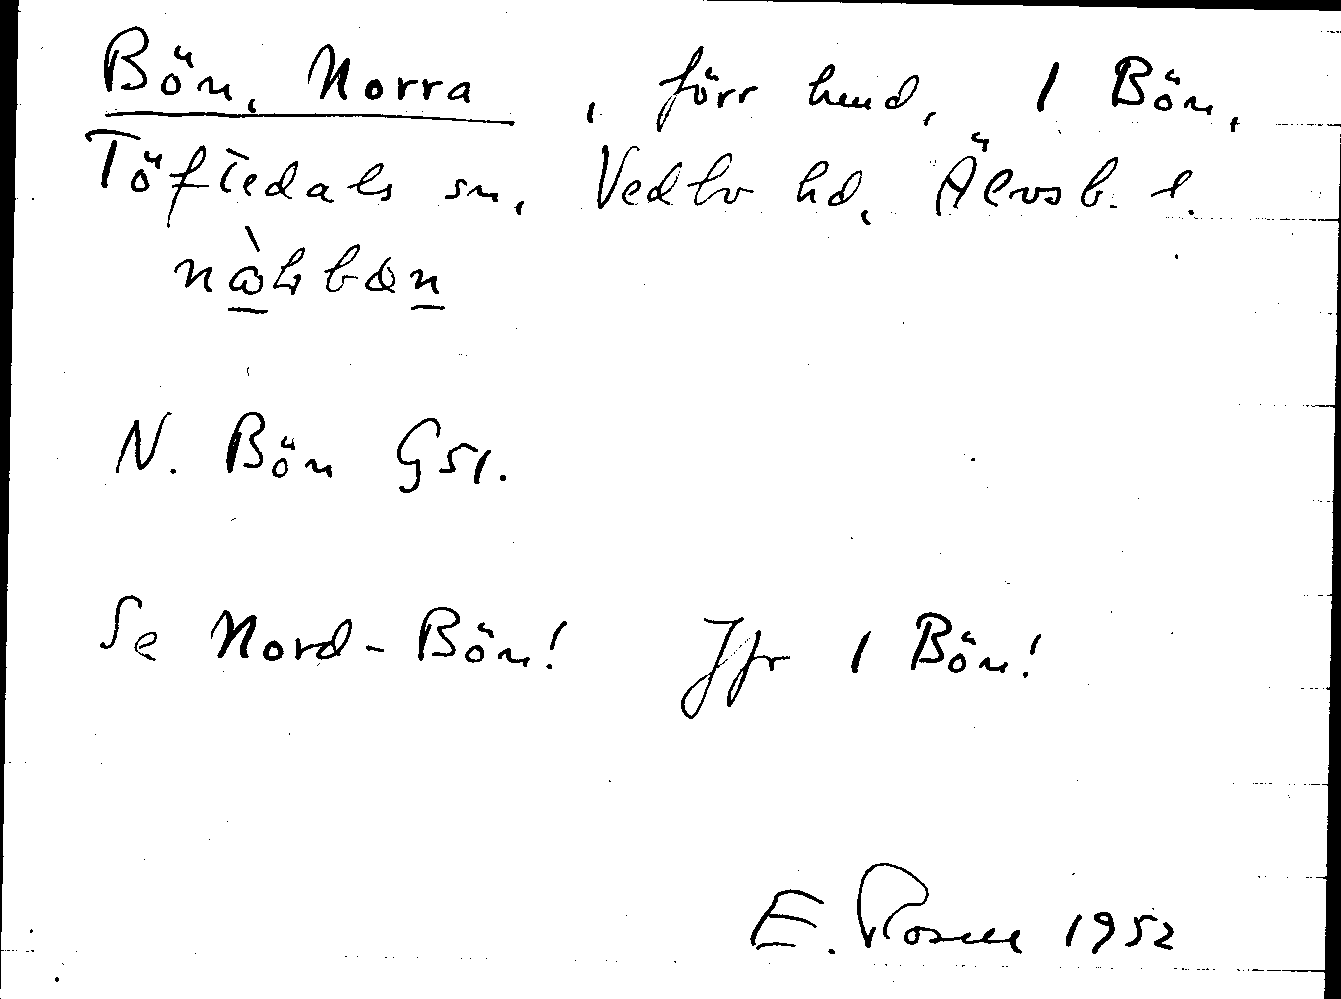 Bön, Norra, förr hmd, 1 Bön,
Töftedals sn, Vedbo hd, Älvsb. l.
N. Bön G51.
Se Nord-Bön! Jfr 1 Bön!
E. Rosell 1952